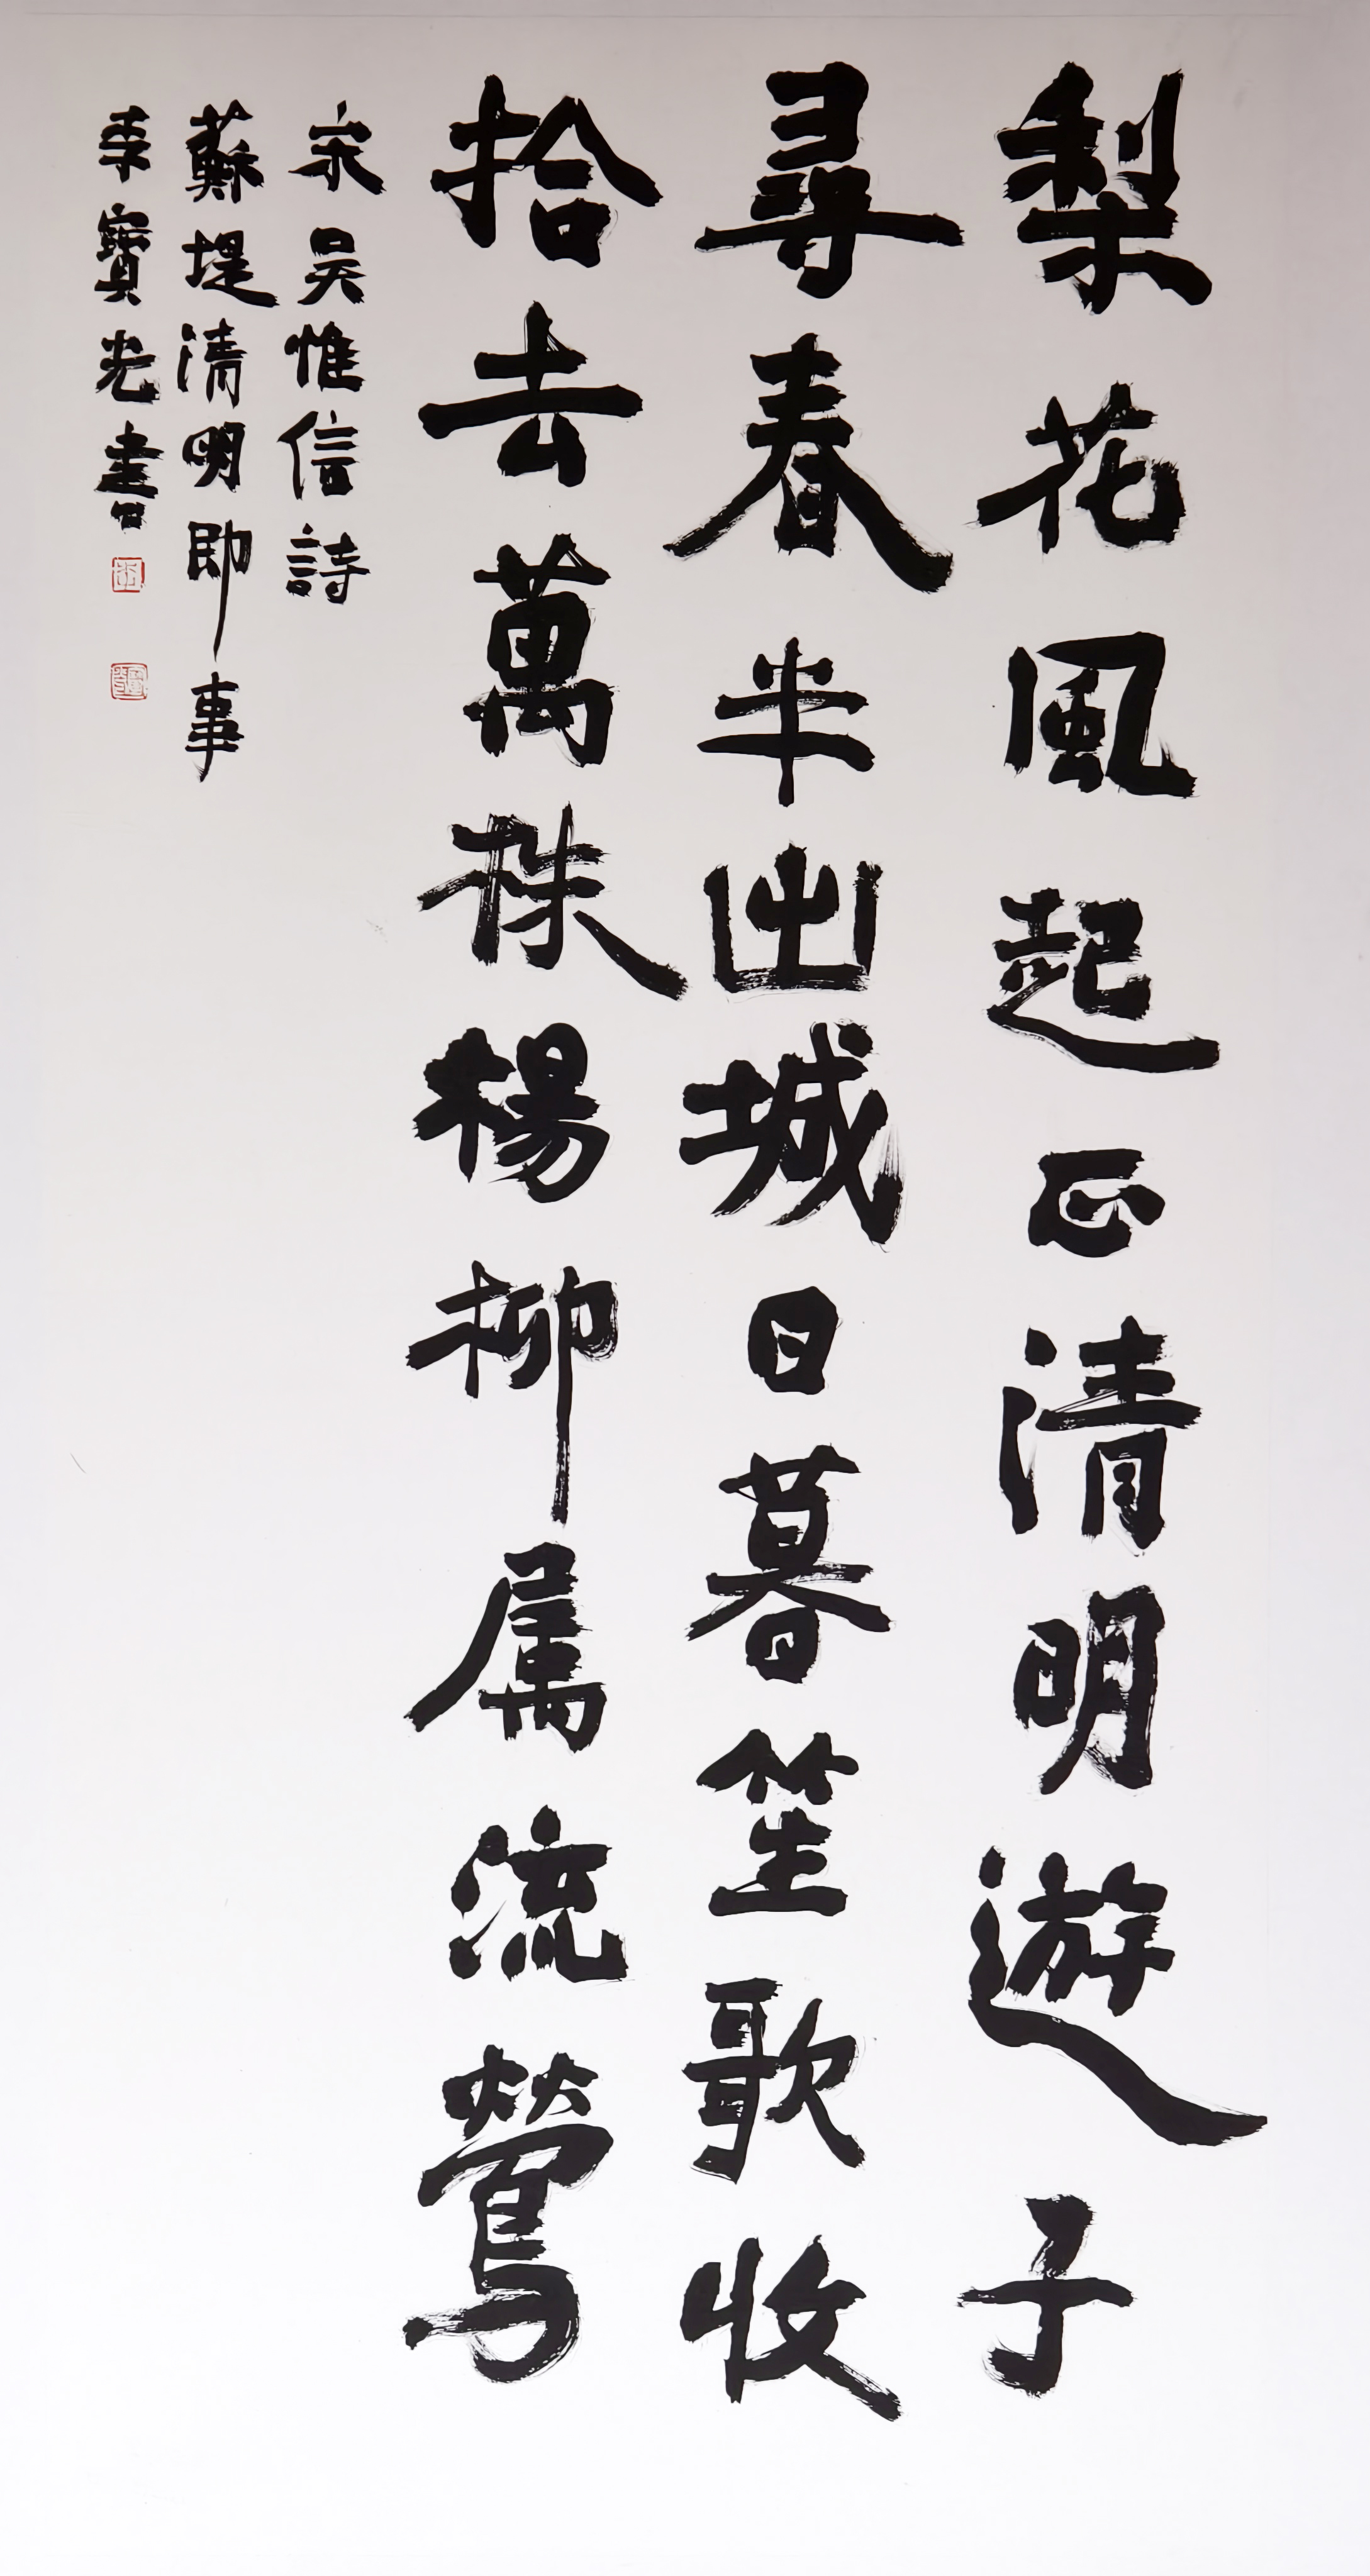 梨花風起正清明遊子
尋春半出城日暮笙歌收
拾去萬株楊柳属流鶯
宋吴惟信詩
蘇堤清明即事
寶光書